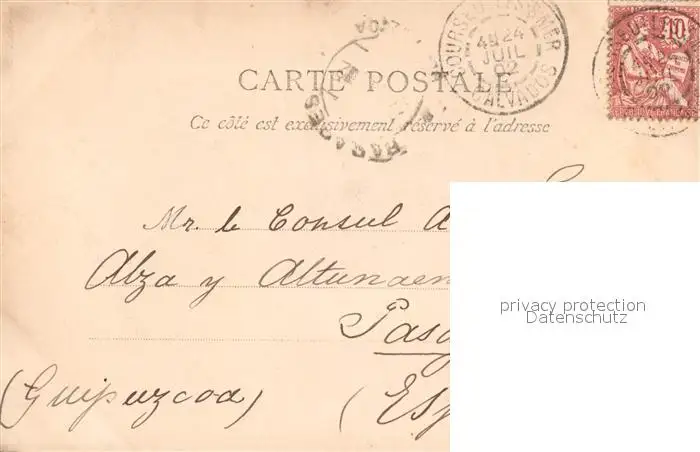 10
COURSEULLES S MER
4E 24
JUIL
02
CALVADOS
CARTE POSTALE
PASAGES
Ce côté est exclusivement réservé à l'adresse
Mr. le Consul A
Alza y Altunaen
Pasa
(Guipuzcoa) (Esp
privacy protection
Datenschutz